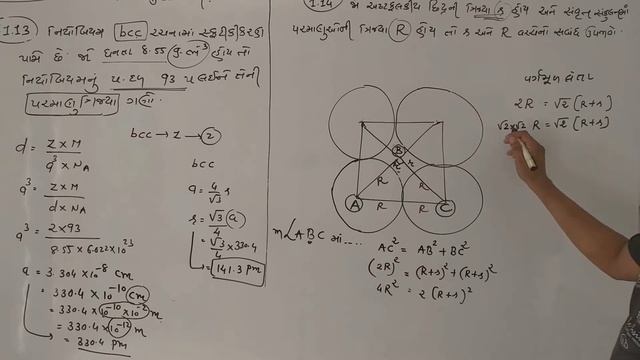 1.13 નિયોબિયમ bcc રચનામાં સ્ફટિકીકરણ
પામે છે. જો ઘનતા 8.55 ગ્રા. સેમી³ હોય તો
નિયોબિયમનું પ.દળ 93 પરથી તેની
પરમાણુ ત્રિજ્યા ગણો.
bcc → z → 2
d = Z × M
a³ × NA
a³ = Z × M
d × NA
a³ = 2 × 93
8.55 × 6.022 × 10²³
a = 3.304 × 10⁻⁸ cm
= 330.4 × 10⁻¹⁰ cm
= 330.4 × 10⁻¹⁰ × 10⁻² m
= 330.4 × 10⁻¹² m
= 330.4 pm
bcc
a = 4 r
√3
r = √3 a
4
= √3 × 330.4
4
= 141.3 pm
1.14 જો અષ્ટફલકીય છિદ્રની ત્રિજ્યા r હોય અને સંવૃત સંકુલનમાં
પરમાણુઓની ત્રિજ્યા R હોય તો r અને R વચ્ચેનો સંબંધ
B
R r
R R
A R R C
m∠ABC માં....
AC² = AB² + BC²
(2R)² = (R+r)² + (R+r)²
4R² = 2 (R+r)²
વર્ગમૂળ લેતા
2R = √2 (R+r)
√2×√2 R = √2 (R+r)